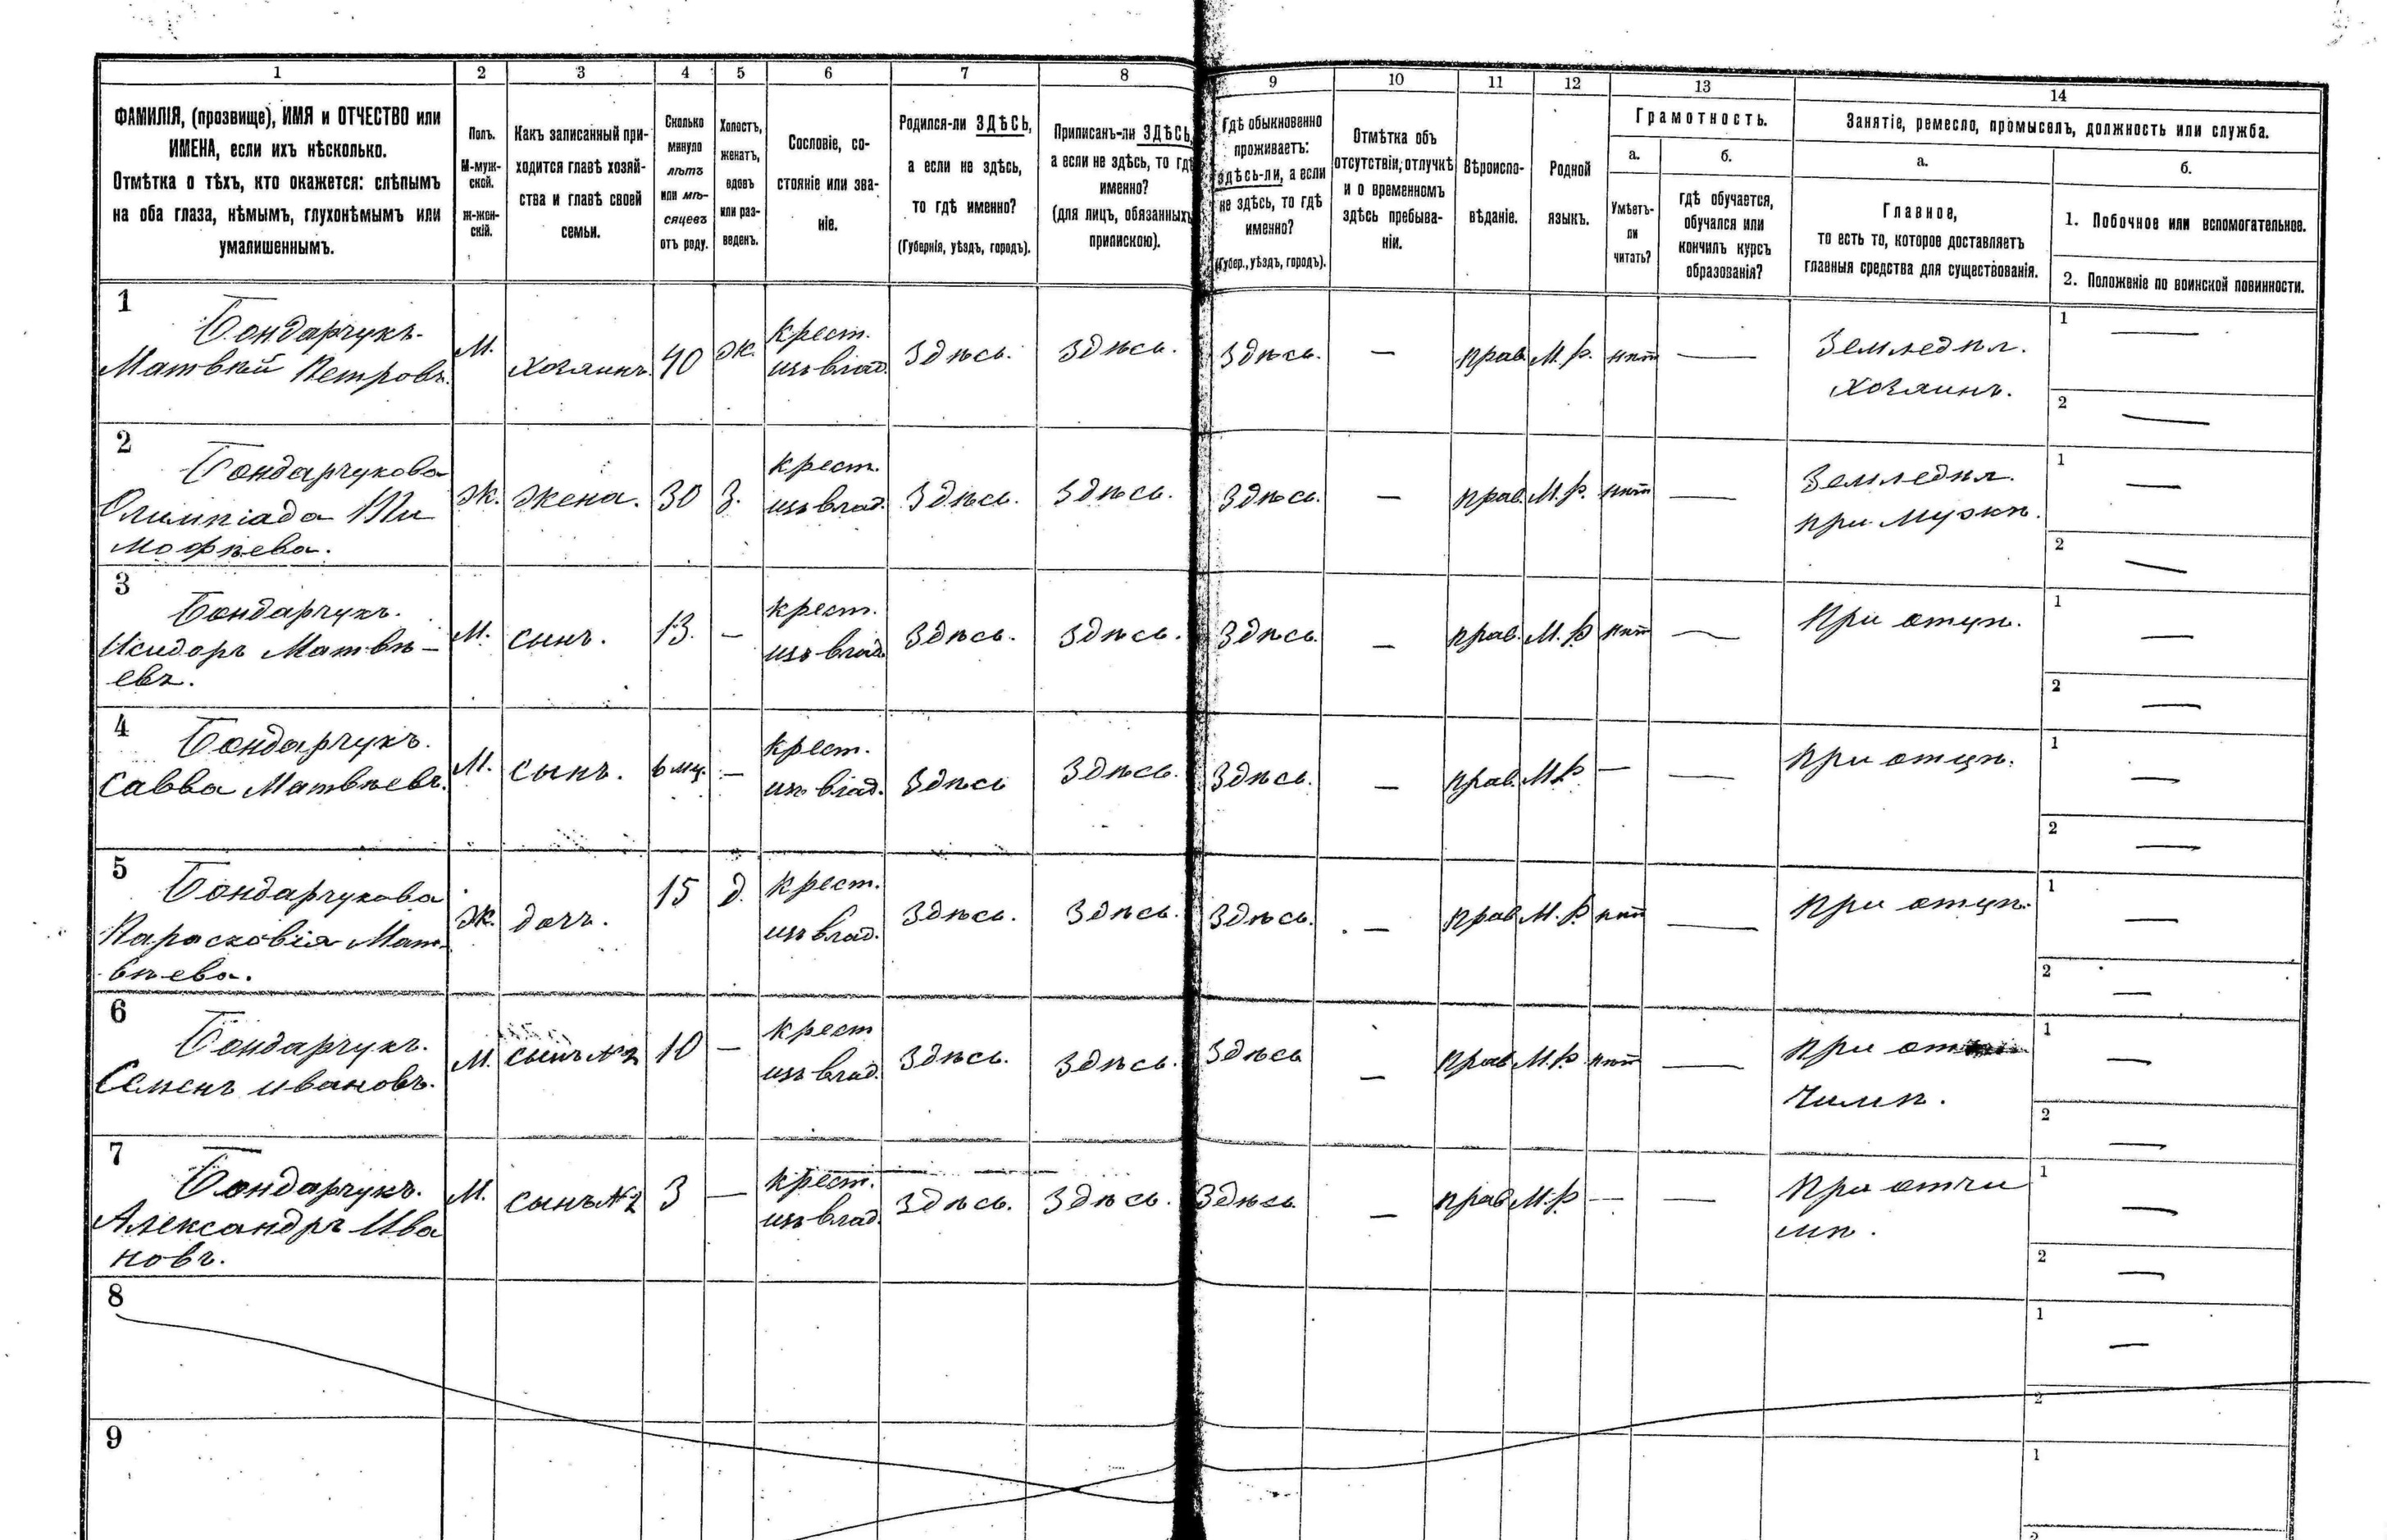 1 2 3 4 5 6 7 8 9 10 11 12 13 14
ФАМИЛІЯ, (прозвище), ИМЯ и ОТЧЕСТВО или
ИМЕНА, если ихъ нѣсколько.
Отмѣтка о тѣхъ, кто окажется: слѣпымъ
на оба глаза, нѣмымъ, глухонѣмымъ или
умалишеннымъ.
Полъ.
М-муж-
ской.
ж-жен-
скій.
Какъ записанный при-
ходится главѣ хозяй-
ства и главѣ своей
семьи.
Сколько
минуло
лѣтъ
или мѣ-
сяцевъ
отъ роду.
Холостъ,
женатъ,
вдовъ
или раз-
веденъ.
Сословіе, со-
стояніе или зва-
ніе.
Родился-ли ЗДѢСЬ,
а если не здѣсь,
то гдѣ именно?
(Губернія, уѣздъ, городъ).
Приписанъ-ли ЗДѢСЬ,
а если не здѣсь, то гдѣ
именно?
(для лицъ, обязанныхъ
припискою).
Гдѣ обыкновенно
проживаетъ:
здѣсь-ли, а если
не здѣсь, то гдѣ
именно?
(Губер., уѣздъ, городъ).
Отмѣтка объ
отсутствіи, отлучкѣ
и о временномъ
здѣсь пребыва-
ніи.
Вѣроиспо-
вѣданіе.
Родной
языкъ.
Грамотность.
а.
Умѣетъ-
ли
читать?
б.
Гдѣ обучается,
обучался или
кончилъ курсъ
образованія?
Занятіе, ремесло, промыселъ, должность или служба.
а.
Главное,
то есть то, которое доставляетъ
главныя средства для существованія.
б.
1. Побочное или вспомогательное.
2. Положеніе по воинской повинности.
1
Бондарчукъ.
Матвѣй Петровъ.
М.
хозяинъ.
40
ж.
крест.
изъ влад.
Здѣсь.
Здѣсь.
Здѣсь.
—
прав.
М. р.
нѣт
—
Земледѣл.
хозяинъ.
1 —
2 —
2
Бондарчукова
Олимпіада Ти
мофѣева.
ж.
жена.
30
З.
крест.
изъ влад.
Здѣсь.
Здѣсь.
Здѣсь.
—
прав.
М. р.
нѣт
—
Земледѣл.
при мужѣ.
1 —
2 —
3
Бондарчукъ.
Исидоръ Матвѣ-
евъ.
М.
сынъ.
13.
—
крест.
изъ влад.
Здѣсь.
Здѣсь.
Здѣсь.
—
прав.
М. р
нѣт
—
При отцѣ.
1 —
2 —
4
Бондарчукъ.
Савва Матвѣевъ.
М.
сынъ.
6 мц.
—
крест.
изъ влад.
Здѣсь
Здѣсь.
Здѣсь.
—
прав.
М. р
—
—
при отцѣ.
1 —
2 —
5
Бондарчукова
Парасковія Мат-
вѣева.
ж.
дочъ.
15
д.
крест.
изъ влад.
Здѣсь.
Здѣсь.
Здѣсь.
—
прав
М. р.
нѣт
—
при отцѣ.
1 —
2 —
6
Бондарчукъ.
Семенъ ивановъ.
М.
сынъ №2
10
—
крест
изъ влад.
Здѣсь.
Здѣсь.
Здѣсь
—
прав
М. р
нѣт
—
при от
чимѣ.
1 —
2 —
7
Бондарчукъ.
Александръ Ива
новъ.
М.
сынъ №2
3
—
крест.
изъ влад.
Здѣсь.
Здѣсь.
Здѣсь.
—
прав
М. р
—
—
При отчи
мѣ.
1 —
2 —
8
1 —
2
9
1
2